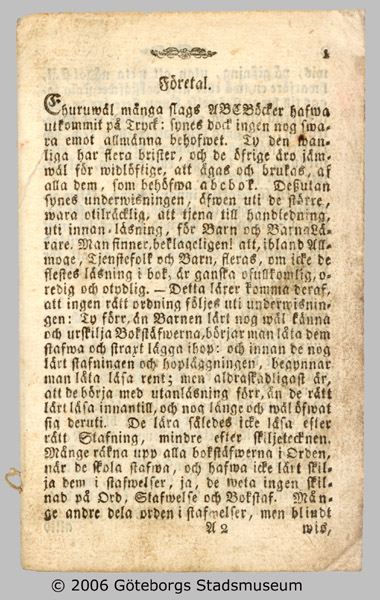 1
Företal.
Ehuruwäl många slags ABCBöcker hafwa
utkommit på Tryck: synes dock ingen nog swa-
ra emot allmänna behofwet. Ty den wan-
liga har flera brister, och de öfrige äro jäm-
wäl för widlöftige, att ägas och brukas, af
alla dem, som behöfwa abebok. Deßutan
synes underwisningen, äfwen uti de större,
wara otilräcklig, att tjena till handledning,
uti innan-läsning, för Barn och BarnaLä-
rare. Man finner, beklageligen! att, ibland All-
moge, Tjenstefolk och Barn, fleras, om icke de
flestes läsning i bok, är ganska ofullkomlig, o-
redig och otydlig. — Detta lärer komma deraf,
att ingen rätt ordning följes uti underwisnin-
gen: Ty förr, än Barnen lärt nog wäl känna
och urskilja Bokstäfwerna, börjar man låta dem
stafwa och straxt lägga ihop: och innan de nog
lärt stafningen och hopläggningen, begynnar
man låta läsa rent; men aldraskadligast är,
att de börja med utanläsning förr, än de rätt
lärt läsa innantill, och nog länge och wäl öfwat
sig deruti. De lära således icke läsa efter
rätt Stafning, mindre efter skiljetecknen.
Månge räkna upp alla bokstäfwerna i Orden,
när de skola stafwa, och hafwa icke lärt skil-
ja dem i stafwelser, ja, de weta ingen skil-
nad på Ord, Stafwelse och Bokstaf. Mån-
ge andre dela orden i stafwelser, men blindt
A 2 wis,
© 2006 Göteborgs Stadsmuseum